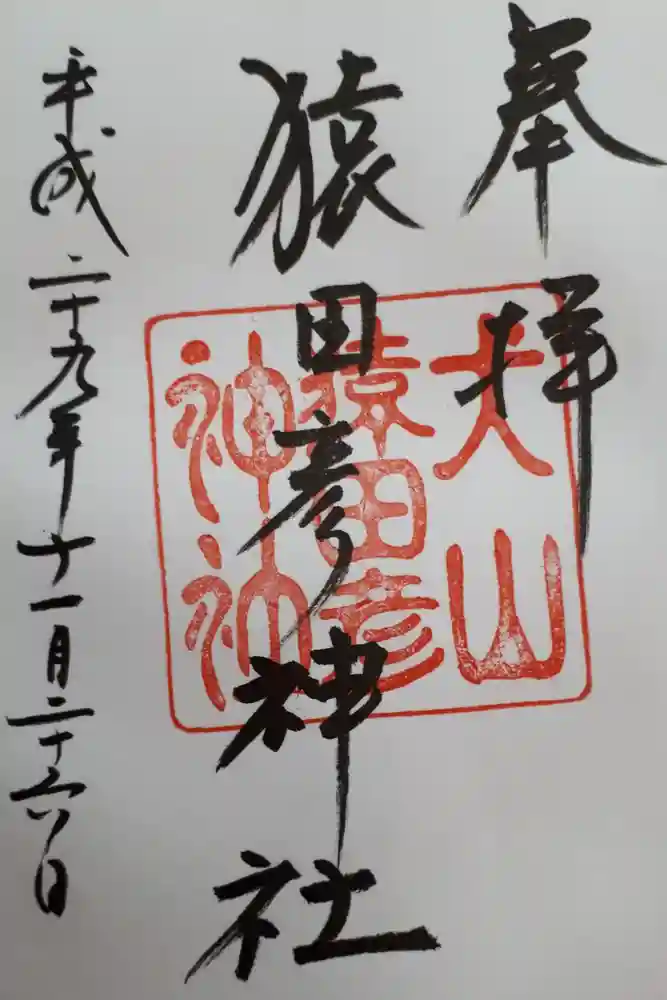 奉拝
猿田彦神社
平成二十九年十一月二十六日
山
猿田彦
神